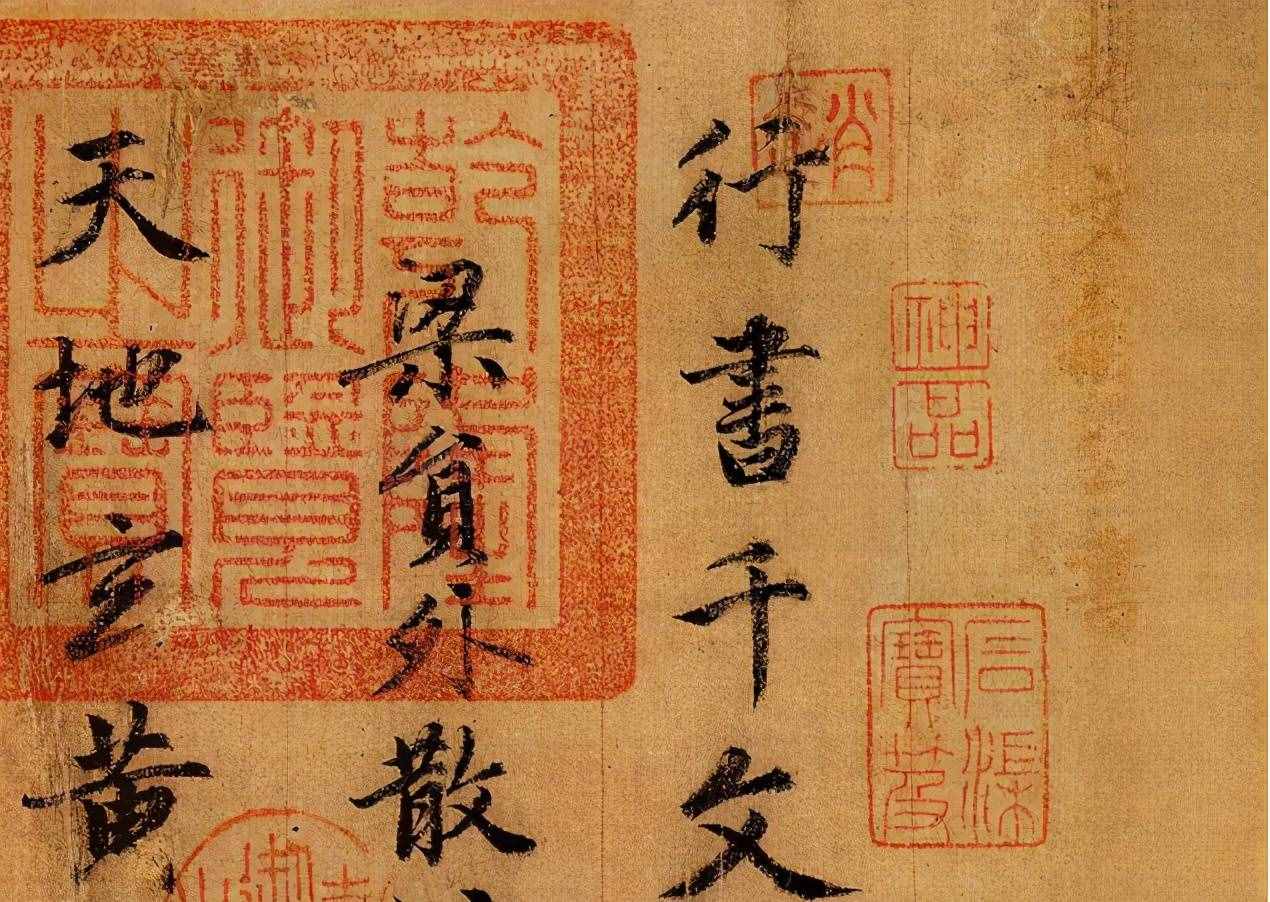 神品
石渠寶笈
行書千文
乾隆御覽之寶
梁員外散
天地玄黄